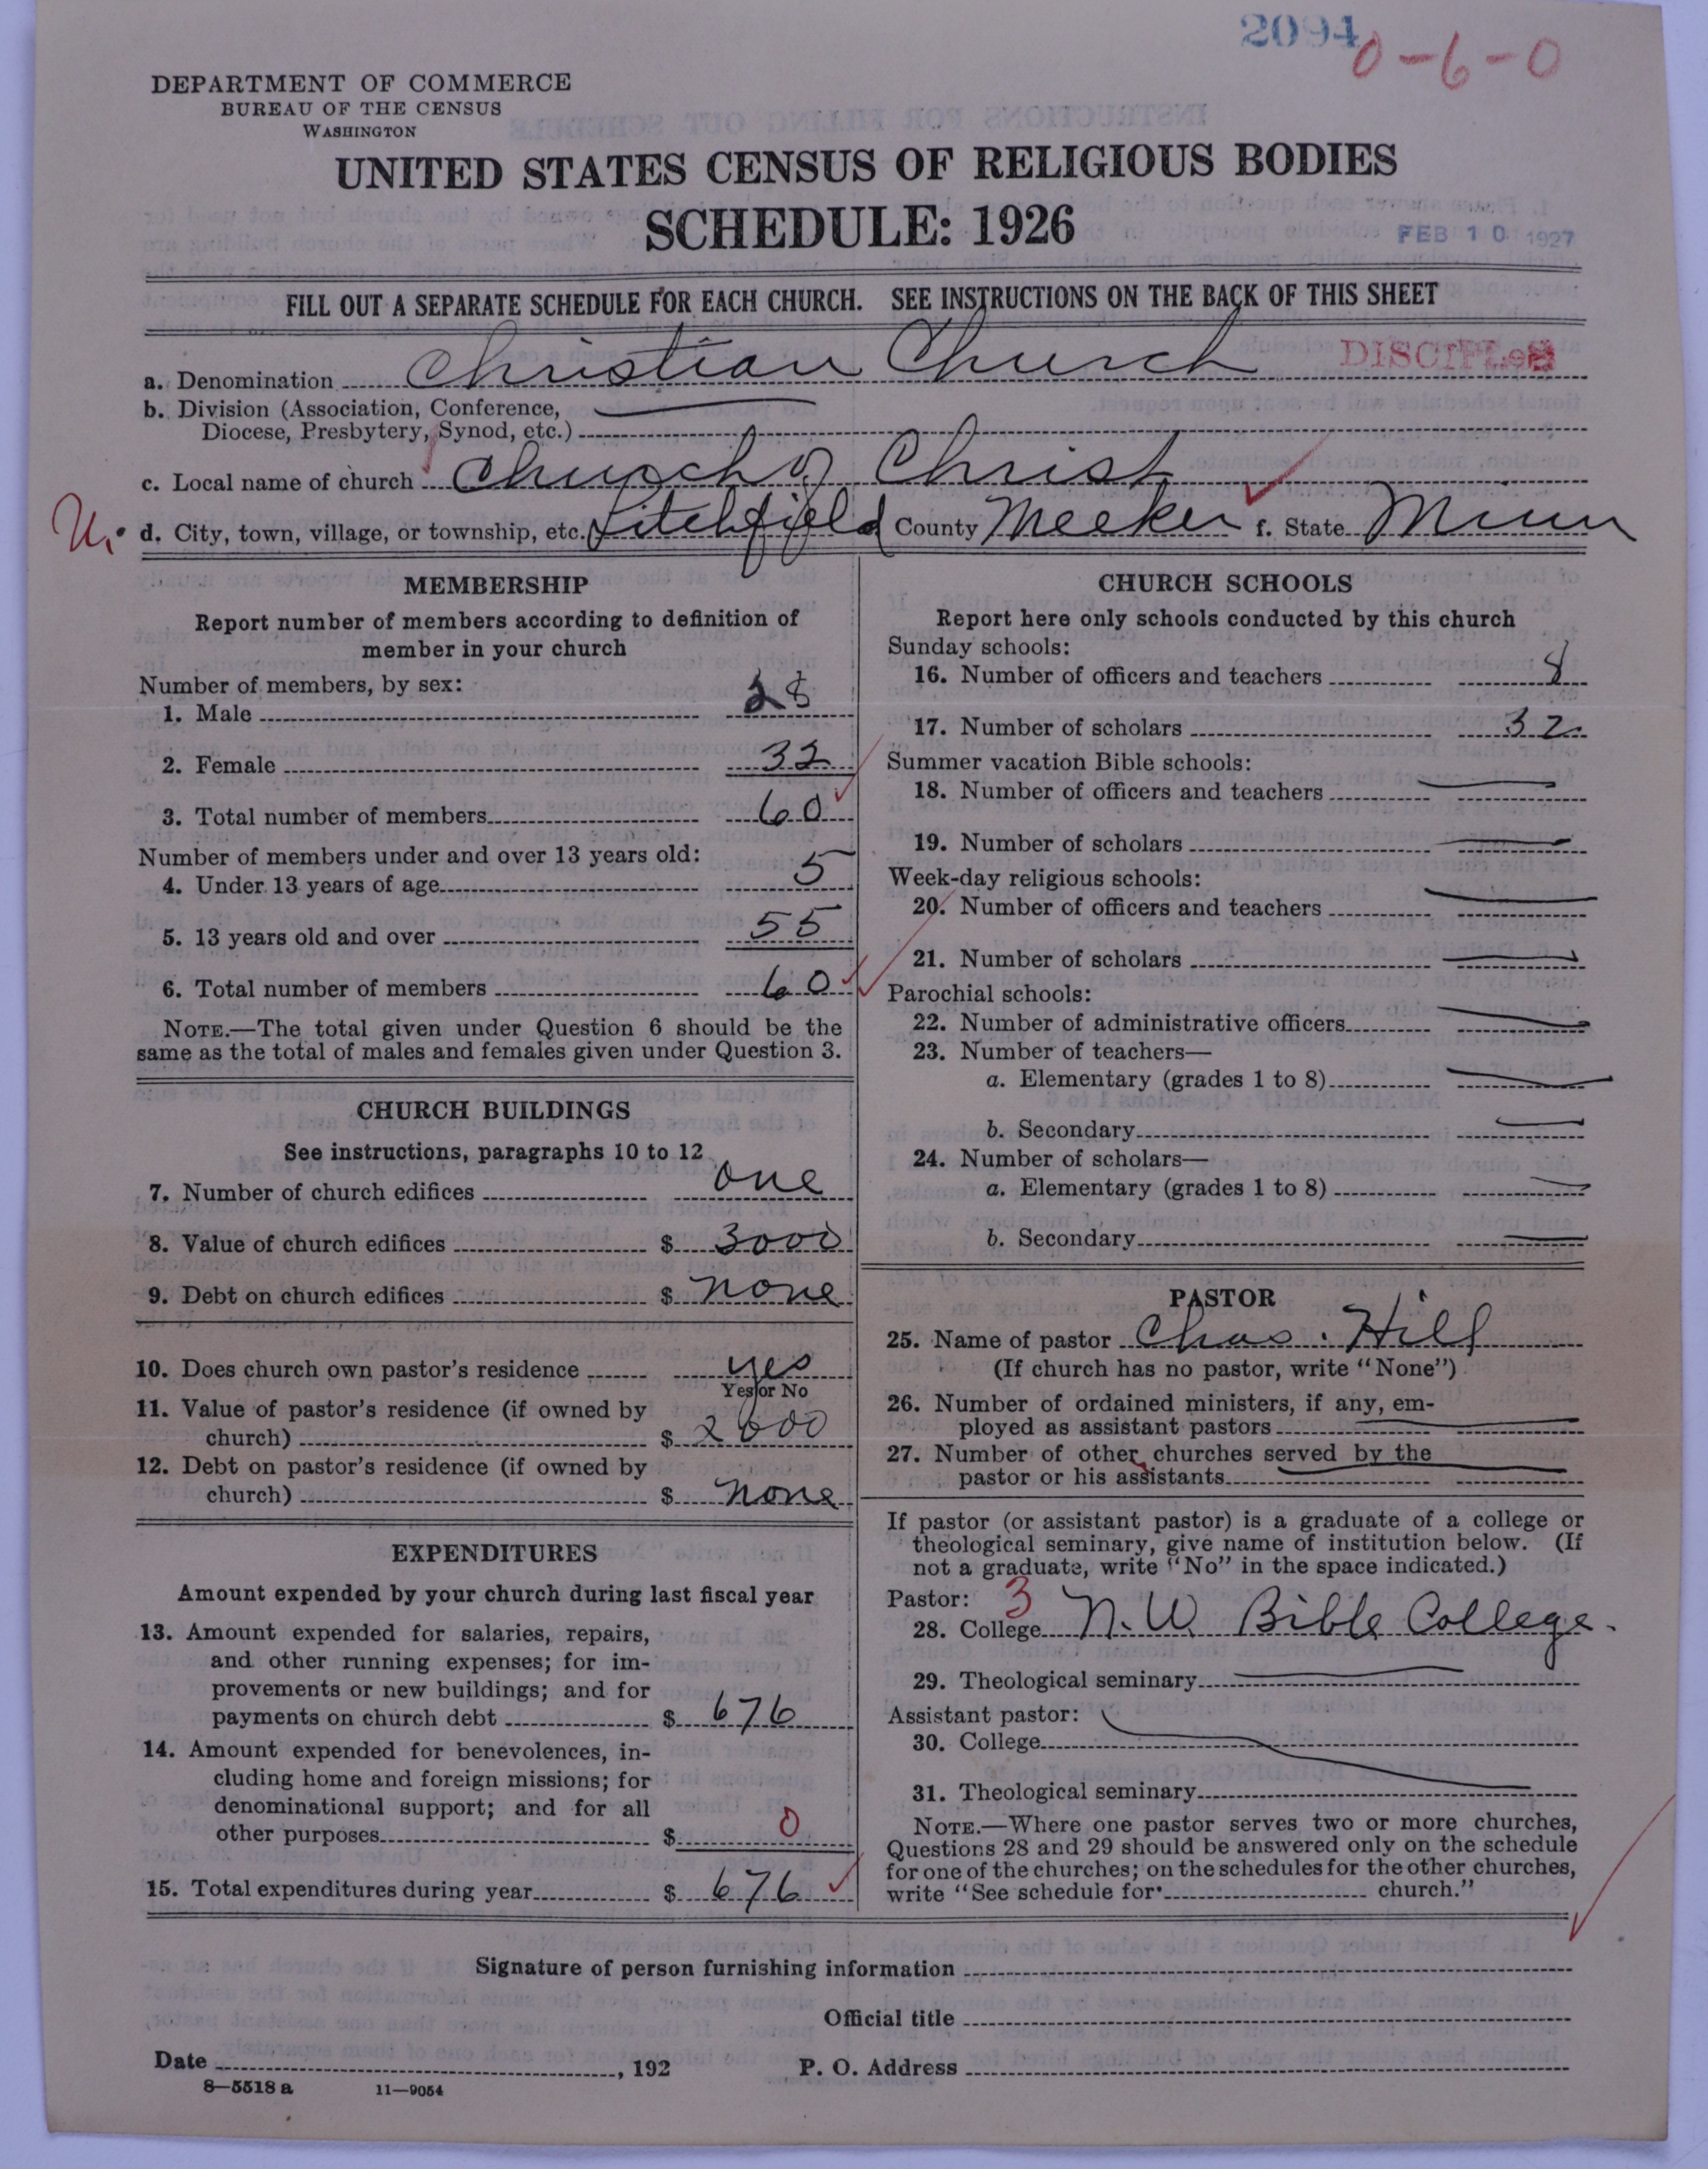 2094
0-6-0
DEPARTMENT OF COMMERCE
BUREAU OF THE CENSUS
WASHINGTON
UNITED STATES CENSUS OF RELIGIOUS BODIES
SCHEDULE: 1926
FEB 10 1927
FILL OUT A SEPARATE SCHEDULE FOR EACH CHURCH. SEE INSTRUCTIONS ON THE BACK OF THIS SHEET
a. Denomination Christian Church DISCIPLES
b. Division (Association, Conference,
Diocese, Presbytery, Synod, etc.)
c. Local name of church Church of Christ
U. d. City, town, village, or township, etc. Litchfield County Meeker f. State Minn
MEMBERSHIP
Report number of members according to definition of
member in your church
Number of members, by sex:
1. Male 28
2. Female 32
3. Total number of members 60
Number of members under and over 13 years old:
4. Under 13 years of age 5
5. 13 years old and over 55
6. Total number of members 60
NOTE.—The total given under Question 6 should be the
same as the total of males and females given under Question 3.
CHURCH BUILDINGS
See instructions, paragraphs 10 to 12
7. Number of church edifices one
8. Value of church edifices $ 3000
9. Debt on church edifices $ none
10. Does church own pastor's residence yes
Yes or No
11. Value of pastor's residence (if owned by
church) $ 2000
12. Debt on pastor's residence (if owned by
church) $ none
EXPENDITURES
Amount expended by your church during last fiscal year
13. Amount expended for salaries, repairs,
and other running expenses; for im-
provements or new buildings; and for
payments on church debt $ 676
14. Amount expended for benevolences, in-
cluding home and foreign missions; for
denominational support; and for all
other purposes $ 0
15. Total expenditures during year $ 676
CHURCH SCHOOLS
Report here only schools conducted by this church
Sunday schools:
16. Number of officers and teachers 8
17. Number of scholars 32
Summer vacation Bible schools:
18. Number of officers and teachers
19. Number of scholars
Week-day religious schools:
20. Number of officers and teachers
21. Number of scholars
Parochial schools:
22. Number of administrative officers
23. Number of teachers—
a. Elementary (grades 1 to 8)
b. Secondary
24. Number of scholars—
a. Elementary (grades 1 to 8)
b. Secondary
PASTOR
25. Name of pastor Chas. Hill
(If church has no pastor, write "None")
26. Number of ordained ministers, if any, em-
ployed as assistant pastors
27. Number of other churches served by the
pastor or his assistants
If pastor (or assistant pastor) is a graduate of a college or
theological seminary, give name of institution below. (If
not a graduate, write "No" in the space indicated.)
Pastor: 3
28. College N.W. Bible College.
29. Theological seminary
Assistant pastor:
30. College
31. Theological seminary
NOTE.—Where one pastor serves two or more churches,
Questions 28 and 29 should be answered only on the schedule
for one of the churches; on the schedules for the other churches,
write "See schedule for church."
Signature of person furnishing information
Official title
Date , 192 P. O. Address
8—5518 a 11—9054